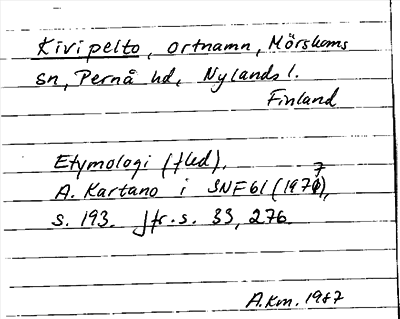 Kivipelto, ortnamn, Mörskoms
sn, Pernå hd, Nylands l.
Finland
Etymologi (fled).
A. Kartano i SNF 61 (1977),
s. 193. Jfr. s. 33, 276.
A.Km. 1987